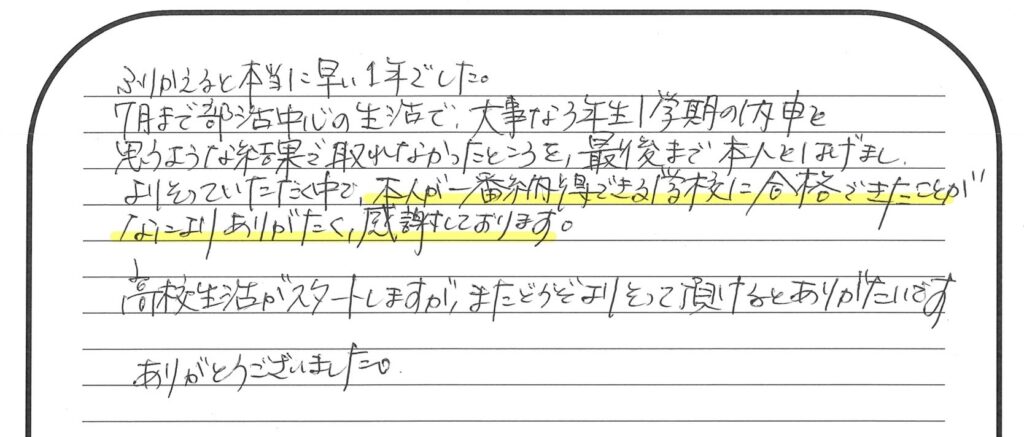 ふりかえると本当に早い1年でした。
7月まで部活中心の生活で、大事な3年生1学期の内申を
思うような結果で取れなかったところを、最後まで本人をはげまし、
よりそっていただく中で、本人が一番納得できる学校に合格できたことが
なによりありがたく、感謝しております。
高校生活がスタートしますが、またどうぞよりそって頂けるとありがたいです
ありがとうございました。